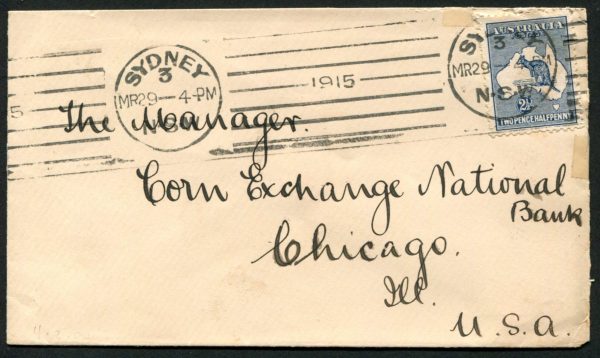 SYDNEY
3
MR29 4-PM
1915
SY
3
MR29
N.S.W.
AUSTRALIA
2½
TWOPENCE HALFPENNY
5
The Manager.
Corn Exchange National
Bank
Chicago.
Ill.
U.S.A.